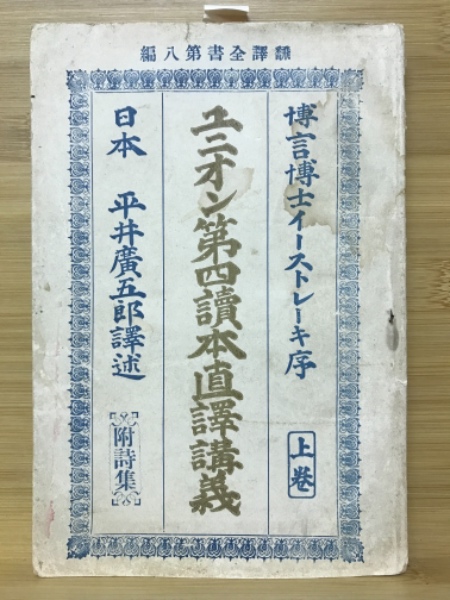 飜譯全書第八編
博言博士イーストレーキ序
上卷
ユニオン第四讀本直譯講義
日本 平井廣五郎譯述
附詩集